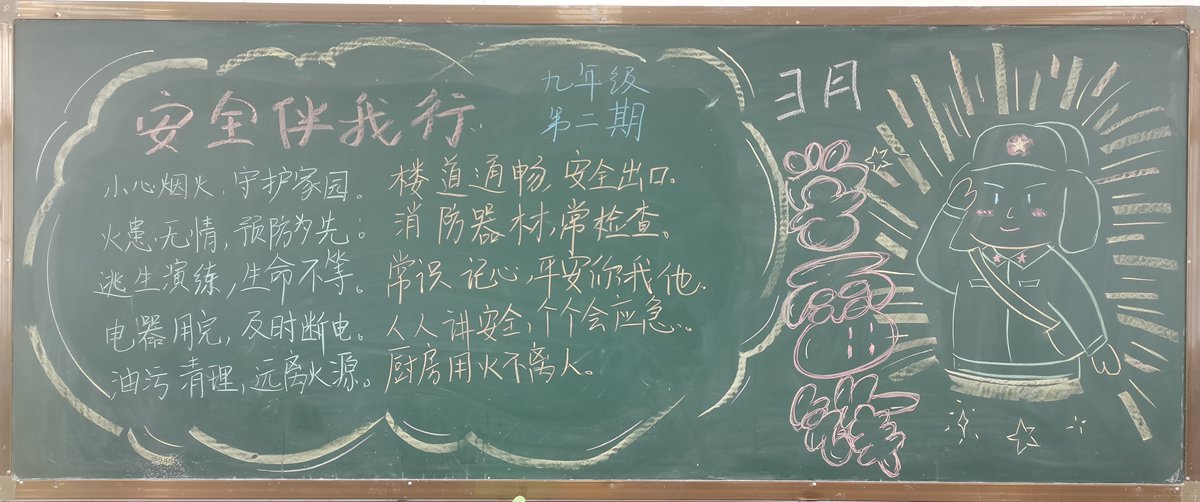 安全伴我行
九年级
第二期
小心烟火,守护家园。
火患无情,预防为先;
逃生演练,生命不等。
电器用完,及时断电。
油污清理,远离火源。
楼道通畅,安全出口。
消防器材,常检查。
常识记心,平安你我他.
人人讲安全,个个会应急..
厨房用火不离人。
3月
学雷锋